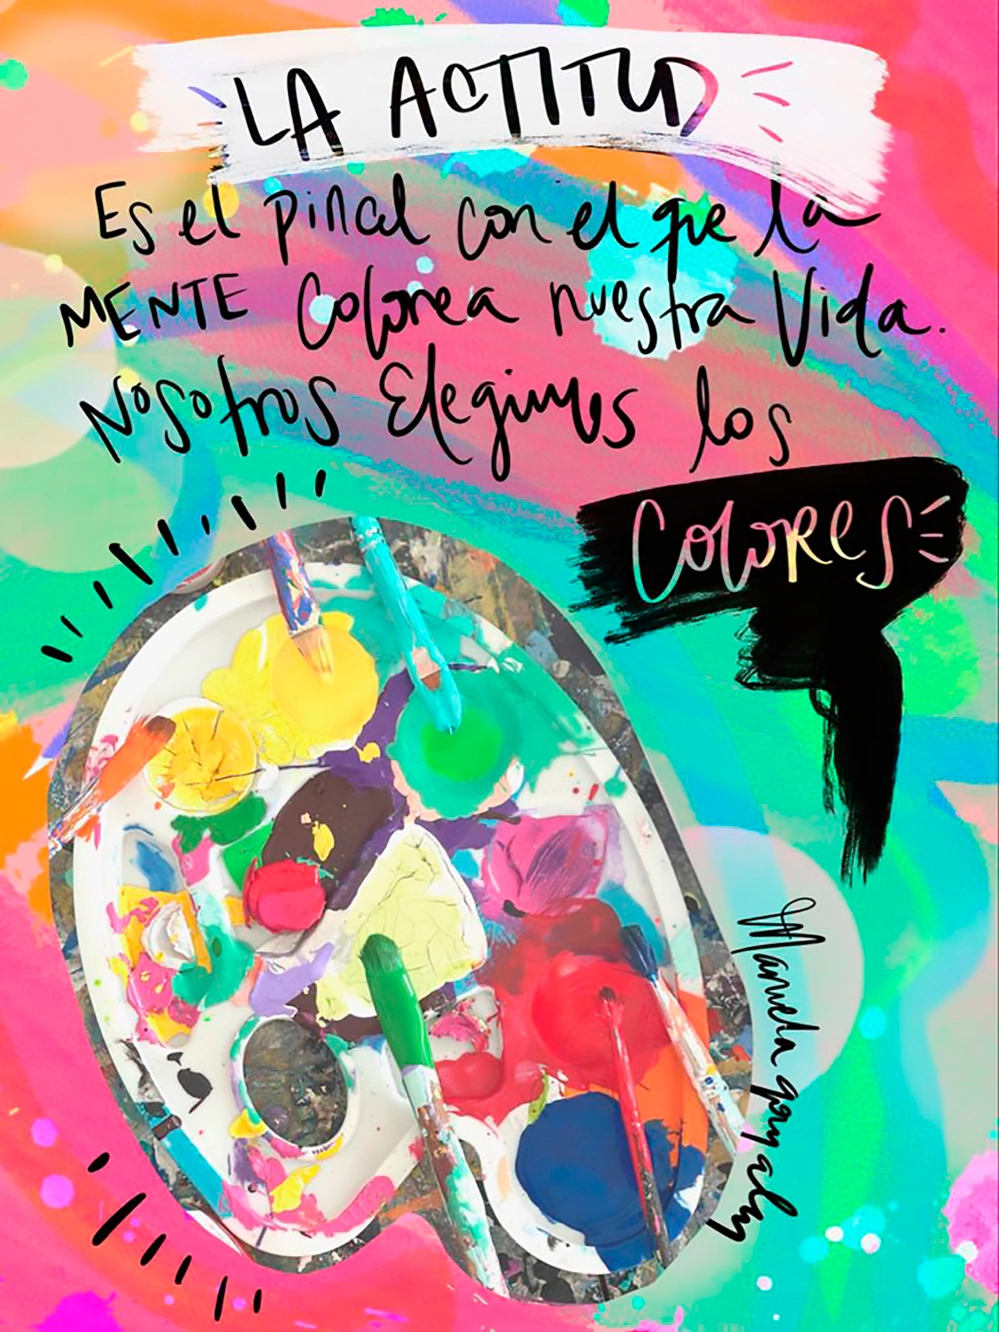 LA ACTITUD
Es el pincel con el que la
MENTE Colorea nuestra Vida.
Nosotros Elegimos los
COLORES
Manuela